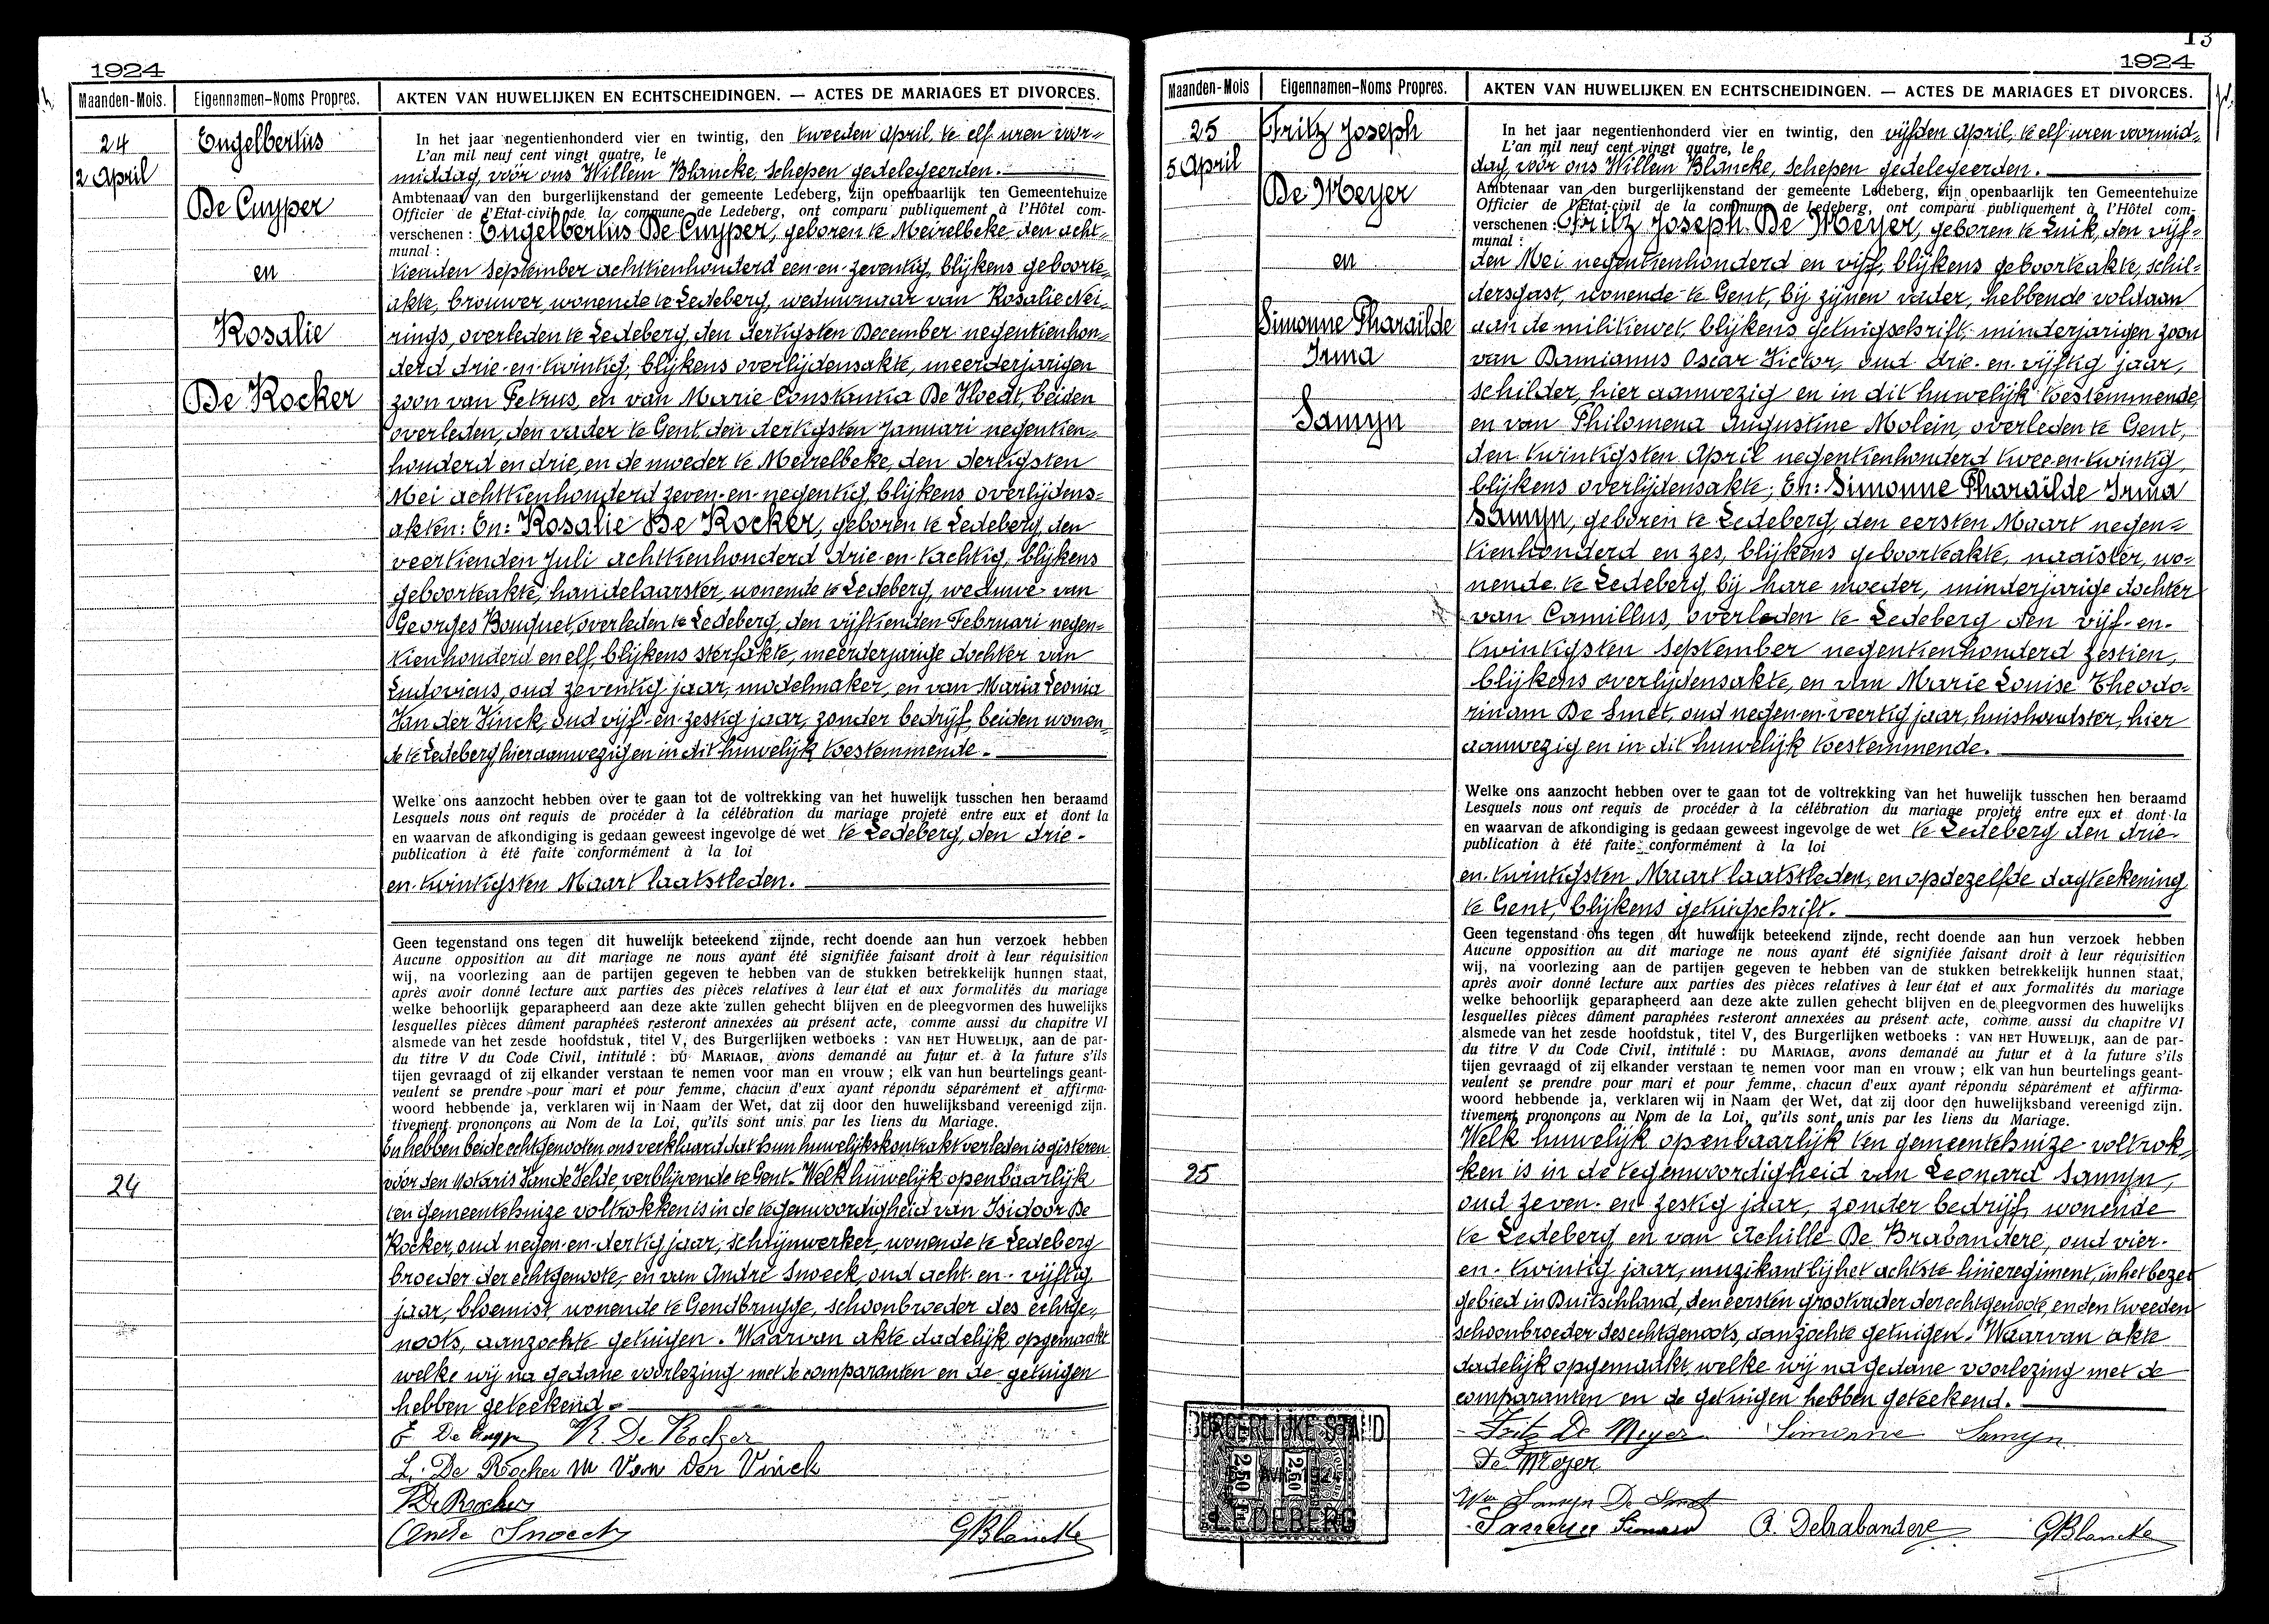 1924
Maanden-Mois. Eigennamen-Noms Propres. AKTEN VAN HUWELIJKEN EN ECHTSCHEIDINGEN. — ACTES DE MARIAGES ET DIVORCES.
24
2 April
Engelbertus
De Cuyper
en
Rosalie
De Kocker
In het jaar negentienhonderd vier en twintig, den tweeden April, te elf uren voor=
L'an mil neuf cent vingt quatre, le
middag, vóór ons Willem Blancke, schepen gedelegeerden.
Ambtenaar van den burgerlijkenstand der gemeente Ledeberg, zijn openbaarlijk ten Gemeentehuize
Officier de l'Etat-civil de la commune de Ledeberg, ont comparu publiquement à l'Hôtel com-
verschenen : Engelbertus De Cuyper, geboren te Meirelbeke, den acht=
munal :
tienden September achttienhonderd een-en-zeventig, blijkens geboorte=
akte, brouwer, wonende te Ledeberg, weduwnaar van Rosalie Nei=
rings, overleden te Ledeberg, den dertigsten December negentienhon=
derd drie-en-twintig, blijkens overlijdensakte, meerderjarigen
zoon van Petrus, en van Marie Constantia De Vloedt, beiden
overleden, den vader te Gent, den dertigsten Januari negentien=
honderd en drie, en de moeder te Meirelbeke, den dertigsten
Mei achttienhonderd zeven-en-negentig, blijkens overlijdens=
akten: En: Rosalie De Kocker, geboren te Ledeberg, den
veertienden Juli achttienhonderd drie-en-tachtig, blijkens
geboorteakte, handelaarster, wonende te Ledeberg, weduwe van
Georges Bouquet, overleden te Ledeberg, den vijftienden Februari negen=
tienhonderd en elf, blijkens sterfakte, meerderjarige dochter van
Ludovicus, oud zeventig jaar, modelmaker, en van Maria Leonia
Van der Vinck, oud vijf-en-zestig jaar, zonder bedrijf, beiden wonen=
de te Ledeberg, hier aanwezig en in dit huwelijk toestemmende.
Welke ons aanzocht hebben over te gaan tot de voltrekking van het huwelijk tusschen hen beraamd
Lesquels nous ont requis de procéder à la célébration du mariage projeté entre eux et dont la
en waarvan de afkondiging is gedaan geweest ingevolge de wet te Ledeberg, den drie-
publication à été faite conformément à la loi
en-twintigsten Maart laatstleden.
Geen tegenstand ons tegen dit huwelijk beteekend zijnde, recht doende aan hun verzoek hebben
Aucune opposition au dit mariage ne nous ayant été signifiée faisant droit à leur réquisition
wij, na voorlezing aan de partijen gegeven te hebben van de stukken betrekkelijk hunnen staat,
après avoir donné lecture aux parties des pièces relatives à leur état et aux formalités du mariage
welke behoorlijk geparapheerd aan deze akte zullen gehecht blijven en de pleegvormen des huwelijks
lesquelles pièces dûment paraphées resteront annexées au présent acte, comme aussi du chapitre VI
alsmede van het zesde hoofdstuk, titel V, des Burgerlijken wetboeks : VAN HET HUWELIJK, aan de par-
du titre V du Code Civil, intitulé : DU MARIAGE, avons demandé au futur et à la future s'ils
tijen gevraagd of zij elkander verstaan te nemen voor man en vrouw ; elk van hun beurtelings geant-
veulent se prendre pour mari et pour femme, chacun d'eux ayant répondu séparément et affirma-
woord hebbende ja, verklaren wij in Naam der Wet, dat zij door den huwelijksband vereenigd zijn.
tivement prononçons au Nom de la Loi, qu'ils sont unis par les liens du Mariage.
En hebben beide echtgenooten ons verklaard dat hun huwelijkskontrakt verleden is gisteren
24
vóór den Notaris Van de Velde, verblijvende te Gent. Welk huwelijk openbaarlijk
ten gemeentehuize voltrokken is in de tegenwoordigheid van Isidoor De
Kocker, oud negen-en-dertig jaar, schrijnwerker, wonende te Ledeberg
broeder der echtgenote, en van André Snoeck, oud acht-en-vijftig
jaar, bloemist, wonende te Gendbrugge, schoonbroeder des echtge=
noots, aanzochte getuigen. Waarvan akte dadelijk opgemaakt
welke wij na gedane voorlezing met de comparanten en de getuigen
hebben geteekend.
E De Cuyper R. De Kocker
L. De Kocker M Van der Vinck
I De Kocker
André Snoeck GBlancke
13
1924
Maanden-Mois Eigennamen-Noms Propres. AKTEN VAN HUWELIJKEN EN ECHTSCHEIDINGEN. — ACTES DE MARIAGES ET DIVORCES.
25
5 April
Fritz Joseph
De Meyer
en
Simonne Pharaïlde
Irma
Samyn
In het jaar negentienhonderd vier en twintig, den vijfden April, te elf uren voormid=
L'an mil neuf cent vingt quatre, le
dag, vóór ons Willem Blancke, schepen gedelegeerden.
Ambtenaar van den burgerlijkenstand der gemeente Ledeberg, zijn openbaarlijk ten Gemeentehuize
Officier de l'Etat-civil de la commune de Ledeberg, ont comparu publiquement à l'Hôtel com-
verschenen : Fritz Joseph De Meyer, geboren te Luik, den vijf=
munal :
den Mei negentienhonderd en vijf, blijkens geboorteakte, schil=
dersgast, wonende te Gent, bij zijnen vader, hebbende voldaan
aan de militiewet, blijkens getuigschrift, minderjarigen zoon
van Damianus Oscar Victor, oud drie-en-vijftig jaar,
schilder, hier aanwezig en in dit huwelijk toestemmende,
en van Philomena Augustine Molein, overleden te Gent,
den twintigsten April negentienhonderd twee-en-twintig,
blijkens overlijdensakte; En: Simonne Pharaïlde Irma
Samyn, geboren te Ledeberg, den eersten Maart negen=
tienhonderd en zes, blijkens geboorteakte, naaister, wo=
nende te Ledeberg, bij hare moeder, minderjarige dochter
van Camillus, overleden te Ledeberg den vijf-en-
twintigsten September negentienhonderd zestien,
blijkens overlijdensakte, en van Marie Louise Theodo=
rinam De Smet, oud negen-en-veertig jaar, huishoudster, hier
aanwezig en in dit huwelijk toestemmende.
Welke ons aanzocht hebben over te gaan tot de voltrekking van het huwelijk tusschen hen beraamd
Lesquels nous ont requis de procéder à la célébration du mariage projeté entre eux et dont la
en waarvan de afkondiging is gedaan geweest ingevolge de wet te Ledeberg den drie-
publication à été faite conformément à la loi
en-twintigsten Maart laatstleden, en op dezelfde dagteekening
te Gent, blijkens getuigschrift.
Geen tegenstand ons tegen dit huwelijk beteekend zijnde, recht doende aan hun verzoek hebben
Aucune opposition au dit mariage ne nous ayant été signifiée faisant droit à leur réquisition
wij, na voorlezing aan de partijen gegeven te hebben van de stukken betrekkelijk hunnen staat,
après avoir donné lecture aux parties des pièces relatives à leur état et aux formalités du mariage
welke behoorlijk geparapheerd aan deze akte zullen gehecht blijven en de pleegvormen des huwelijks
lesquelles pièces dûment paraphées resteront annexées au présent acte, comme aussi du chapitre VI
alsmede van het zesde hoofdstuk, titel V, des Burgerlijken wetboeks : VAN HET HUWELIJK, aan de par-
du titre V du Code Civil, intitulé : DU MARIAGE, avons demandé au futur et à la future s'ils
tijen gevraagd of zij elkander verstaan te nemen voor man en vrouw ; elk van hun beurtelings geant-
veulent se prendre pour mari et pour femme, chacun d'eux ayant répondu séparément et affirma-
woord hebbende ja, verklaren wij in Naam der Wet, dat zij door den huwelijksband vereenigd zijn.
tivement prononçons au Nom de la Loi, qu'ils sont unis par les liens du Mariage.
Welk huwelijk openbaarlijk ten gemeentehuize voltrok=
25
ken is in de tegenwoordigheid van Leonard Samyn,
oud zeven-en-zestig jaar, zonder bedrijf, wonende
te Ledeberg, en van Achille De Brabandere, oud vier-
en-twintig jaar, muzikant bij het achtste linieregiment, in het bezet
gebied in Duitschland, den eersten grootvader der echtgenoote, en den tweeden
schoonbroeder des echtgenoots, aanzochte getuigen. Waarvan akte
dadelijk opgemaakt, welke wij na gedane voorlezing met de
comparanten en de getuigen hebben geteekend.
BURGERLIJKE STAND
2.50 2.50
LEDEBERG
Fritz De Meyer Simonne Samyn
De Meyer
We Samyn De Smet
Samyn Leonard A. Debrabandere GBlancke